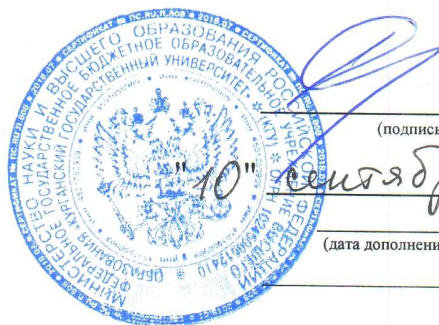 СЕРТИФИКАТ № ПС.RU.П.808 ★ 2018.07 ★
МИНИСТЕРСТВО НАУКИ И ВЫСШЕГО ОБРАЗОВАНИЯ РОССИЙСКОЙ ФЕДЕРАЦИИ
ФЕДЕРАЛЬНОЕ ГОСУДАРСТВЕННОЕ БЮДЖЕТНОЕ ОБРАЗОВАТЕЛЬНОЕ УЧРЕЖДЕНИЕ ВЫСШЕГО
ОБРАЗОВАНИЯ «КУРГАНСКИЙ ГОСУДАРСТВЕННЫЙ УНИВЕРСИТЕТ» (КГУ)
(подпись
"10" сентябр
(дата дополнени